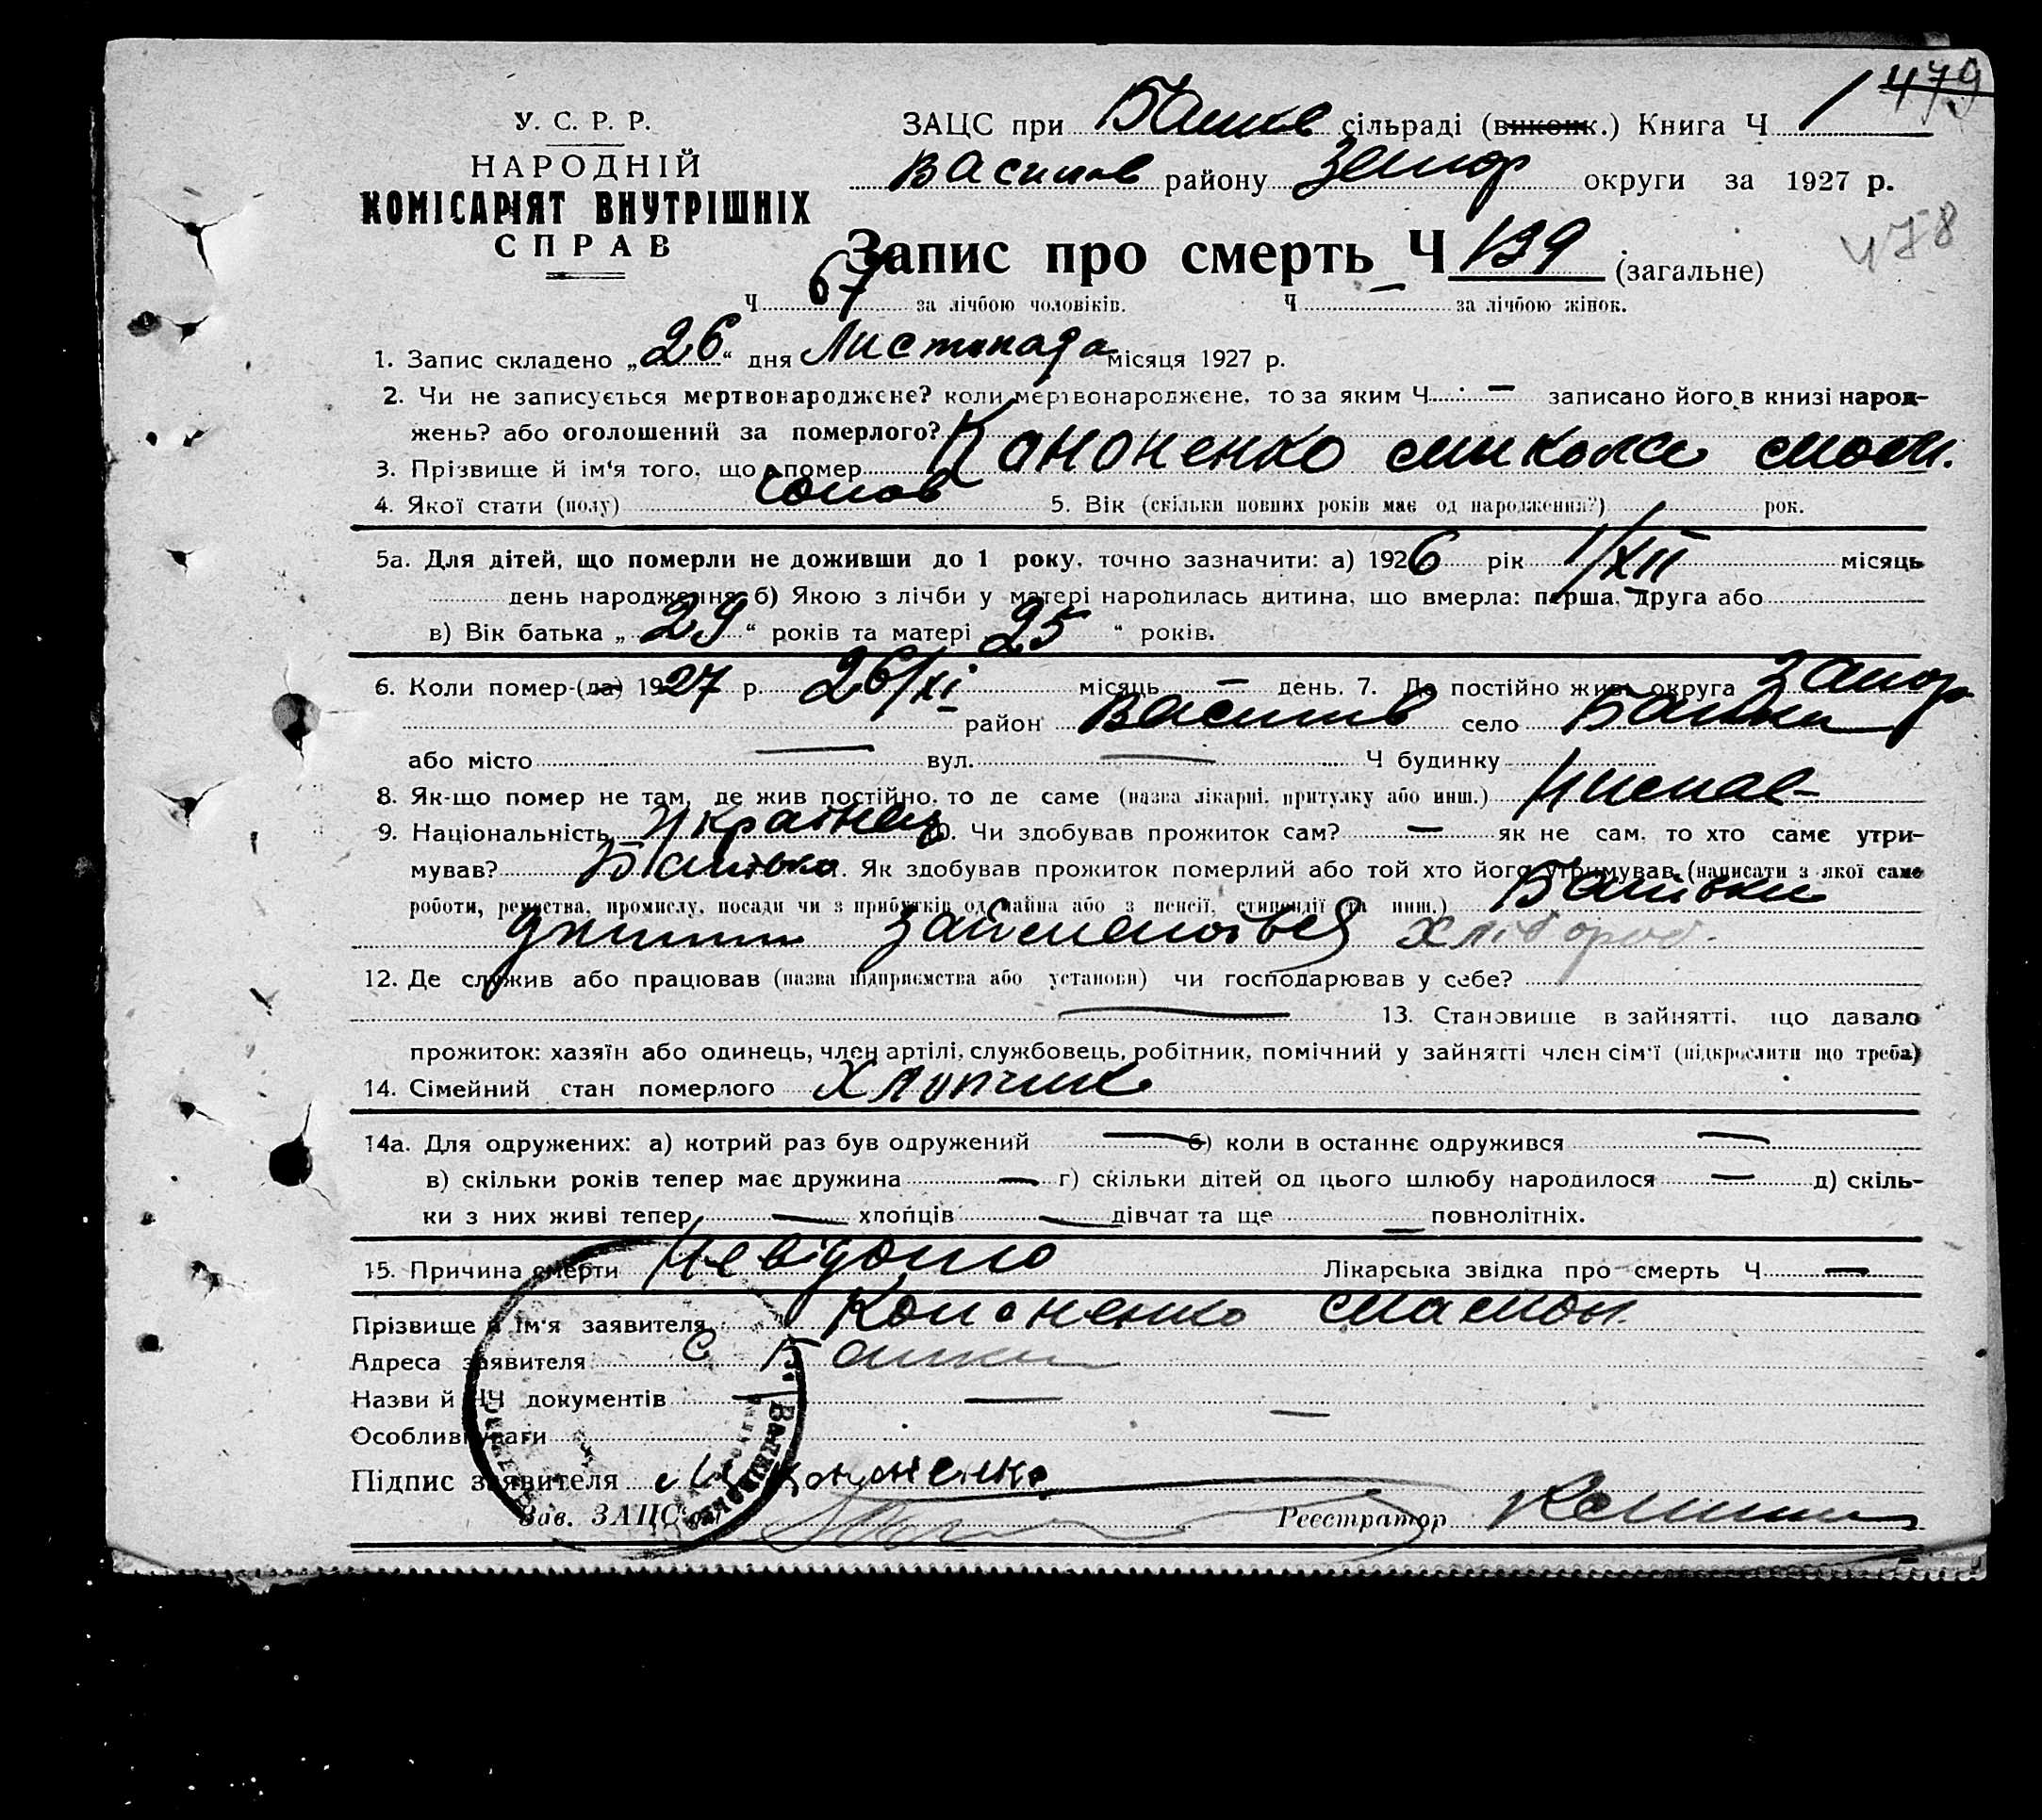 1 479
У. С. Р. Р.
НАРОДНІЙ
КОМІСАРІЯТ ВНУТРІШНІХ
СПРАВ
ЗАЦС при сільраді (виконк.) Книга Ч 1
Василів району Запор округи за 1927 р.
478
Запис про смерть Ч 139 (загальне)
Ч 67 за лічбою чоловіків. Ч — за лічбою жінок.
1. Запис складено „26“ дня Листопада місяця 1927 р.
2. Чи не записується мертвонароджене? коли мертвонароджене, то за яким Ч — записано його в книзі народ-
жень? або оголошений за померлого?
3. Прізвище й ім'я того, що помер Кононенко Микола
4. Якої стати (полу) 5. Вік (скільки повних років має од народження?) рок.
5а. Для дітей, що померли не доживши до 1 року, точно зазначити: а) 1926 рік 1/XII місяць
день народження б) Якою з лічби у матері народилась дитина, що вмерла: перша, друга або
в) Вік батька „29“ років та матері 25 “ років.
6. Коли помер-(ла) 1927 р. 26/XI місяць — день. 7. Де постійно жив: округа Запор
район Василів село
або місто — вул. — Ч будинку
8. Як-що помер не там, де жив постійно, то де саме (назва лікарні, притулку або инш.)
9. Національність Українец 10. Чи здобував прожиток сам? — як не сам, то хто саме утри-
мував? Батько. Як здобував прожиток померлий або той хто його утримував (написати з якої саме
роботи, ремества, промислу, посади чи з прибутків од майна або з пенсії, стипендії та инш.) Батьки
хлібороб.
12. Де служив або працював (назва підприємства або установи) чи господарював у себе?
— 13. Становище в зайнятті, що давало
прожиток: хазяїн або одинець, член артілі, службовець, робітник, помічний у зайнятті член сім'ї (підкреслити що треба)
14. Сімейний стан померлого Хлопчик
14а. Для одружених: а) котрий раз був одружений — б) коли в останнє одружився —
в) скільки років тепер має дружина — г) скільки дітей од цього шлюбу народилося — д) скіль-
ки з них живі тепер — хлопців — дівчат та ще — повнолітніх.
15. Причина смерти Невідомо Лікарська звідка про смерть Ч —
Прізвище й ім'я заявителя Кононенко
Адреса заявителя с
Назви й ЧЧ документів —
Особливі уваги
Підпис заявителя М Кононенко
Зав. ЗАЦС'ом Реєстратор